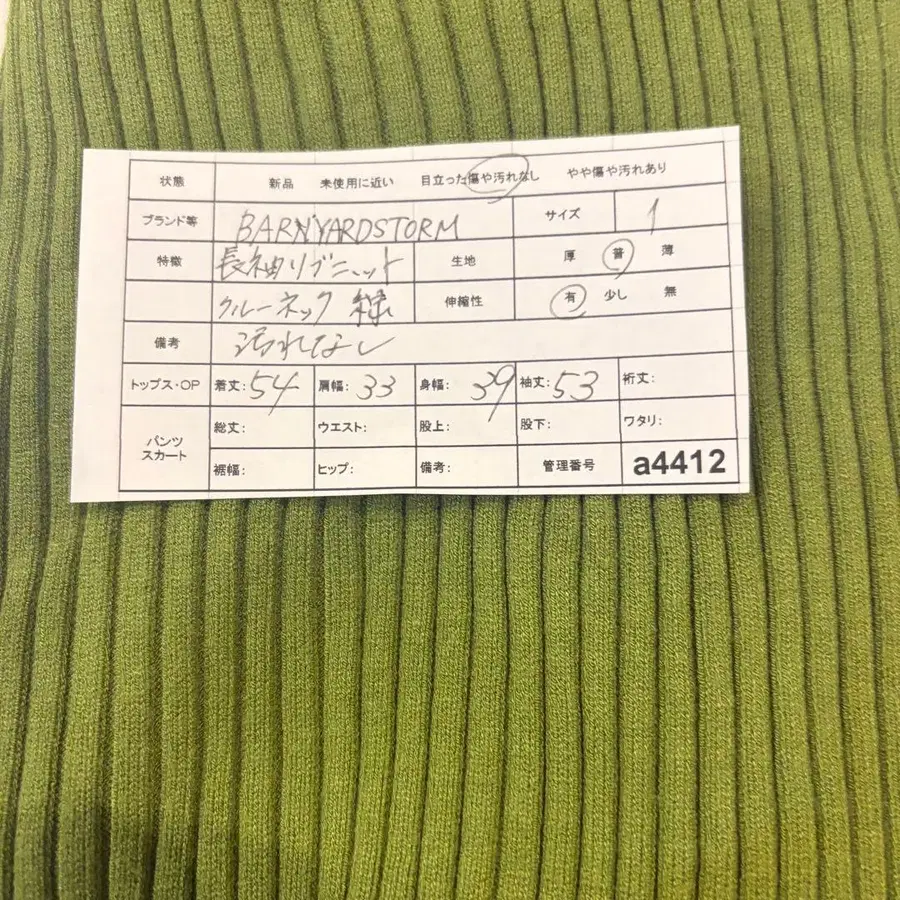 状態 新品 未使用に近い 目立った傷や汚れなし やや傷や汚れあり
ブランド等 BARNYARDSTORM サイズ 1
特徴 長袖リブニット 生地 厚 普 薄
クルーネック 緑 伸縮性 有 少し 無
備考 汚れなし
トップス・OP 着丈: 54 肩幅: 33 身幅: 39 袖丈: 53 裄丈:
パンツ スカート 総丈: ウエスト: 股上: 股下: ワタリ:
裾幅: ヒップ: 備考: 管理番号 a4412